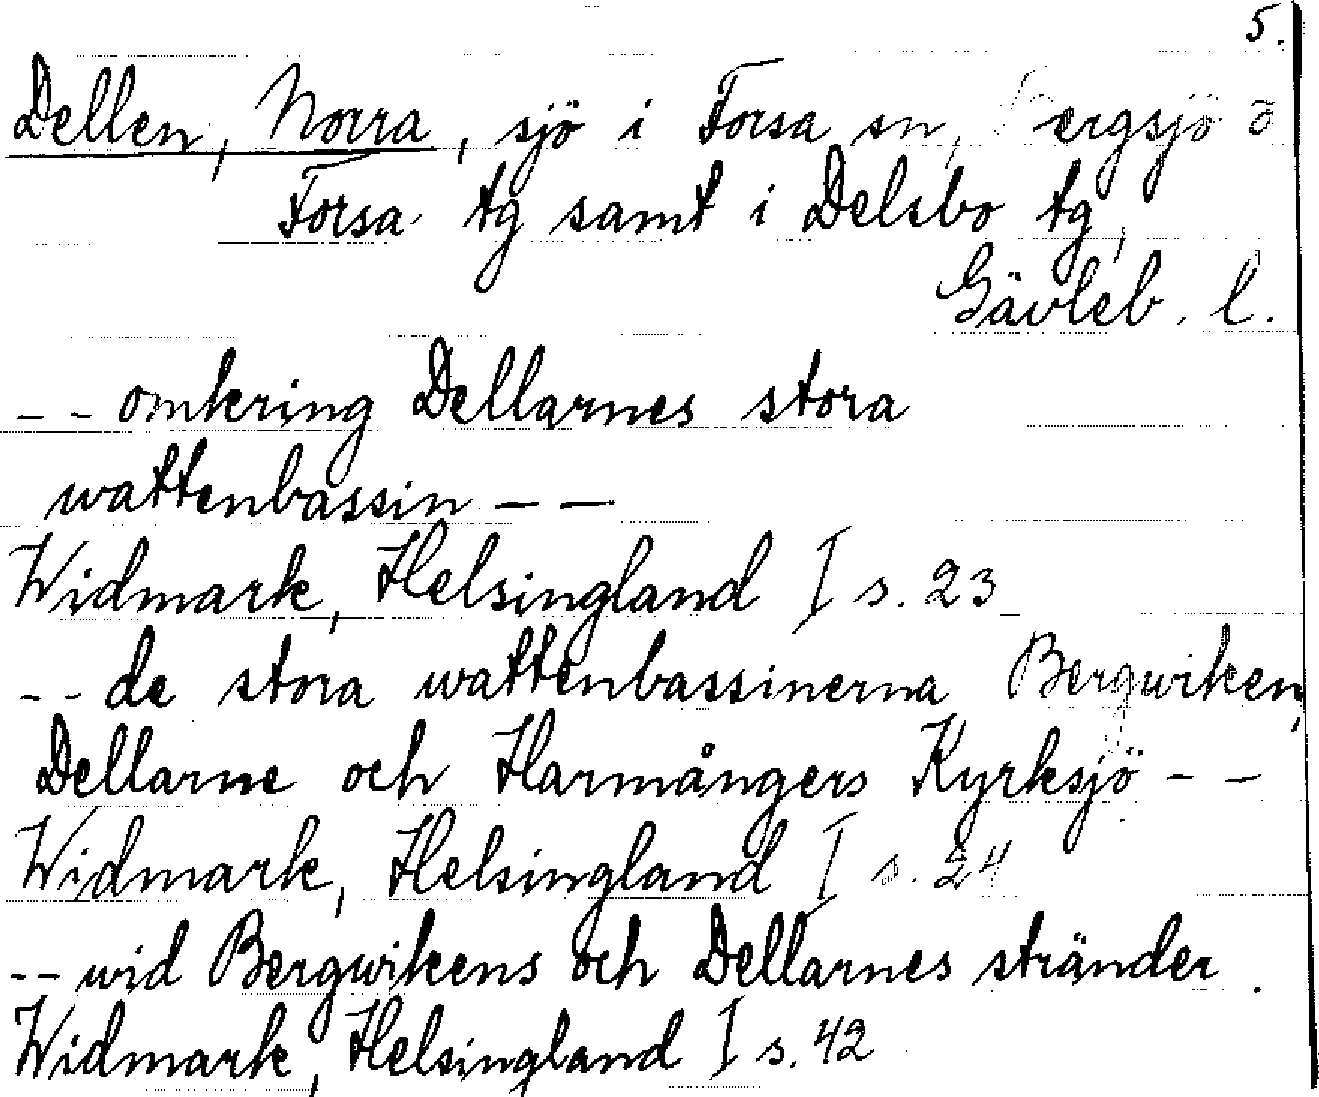 5.
Dellen, Norra, sjö i Forsa sn, Bergsjö o
Forsa tg samt i Delsbo tg,
Gävleb. l.
-- omkring Dellarnes stora
wattenbassin --
Widmark, Helsingland I s. 23
-- de stora wattenbassinerna Bergwiken,
Dellarne och Harmångers Kyrksjö --
Widmark, Helsingland I s. 24
-- wid Bergwikens och Dellarnes stränder.
Widmark, Helsingland I s. 42